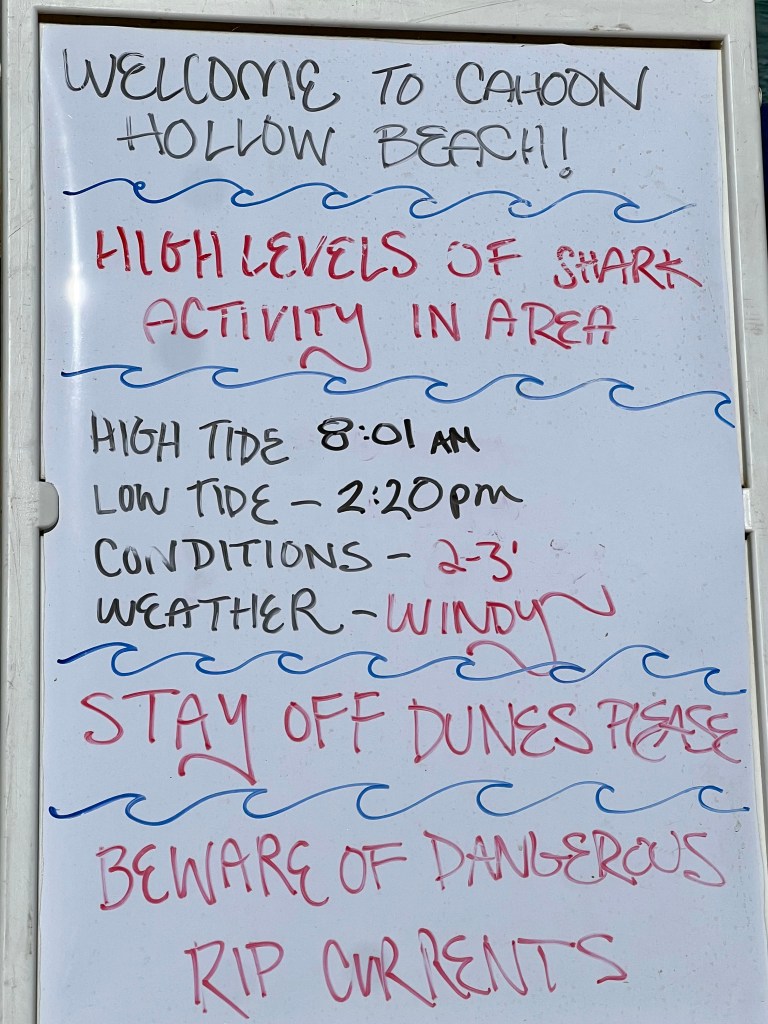 WELCOME TO CAHOON
HOLLOW BEACH!
HIGH LEVELS OF SHARK
ACTIVITY IN AREA
HIGH TIDE 8:01 AM
LOW TIDE - 2:20pm
CONDITIONS - 2-3'
WEATHER - WINDY
STAY OFF DUNES PLEASE
BEWARE OF DANGEROUS
RIP CURRENTS